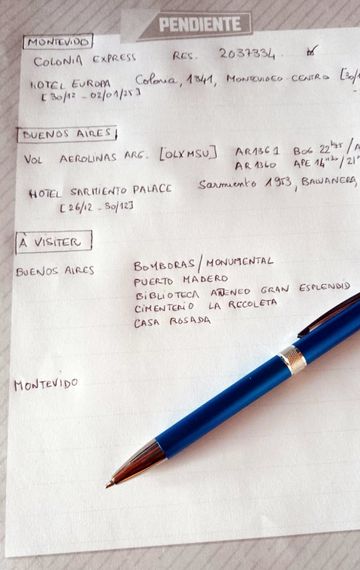 PENDIENTE
MONTEVIDEO
COLONIA EXPRESS RES. 2037334
HOTEL EUROPA Colonia, 1341, MONTEVIDEO CENTRO [30/1
[30/12 - 02/01/25]
BUENOS AIRES
VOL AEROLINAS ARG. [OLXMSU] AR1361 BOG 22h25/A
AR1360 APE 14h20/21h
HOTEL SARMIENTO PALACE Sarmiento 1953, BALVANERA,
[26/12 - 30/12]
À VISITER
BUENOS AIRES BOMBORAS/MONUMENTAL
PUERTO MADERO
BIBLIOTECA ATENEO GRAN ESPLENDID
CIMENTERIO LA RECOLETA
CASA ROSADA
MONTEVIDO